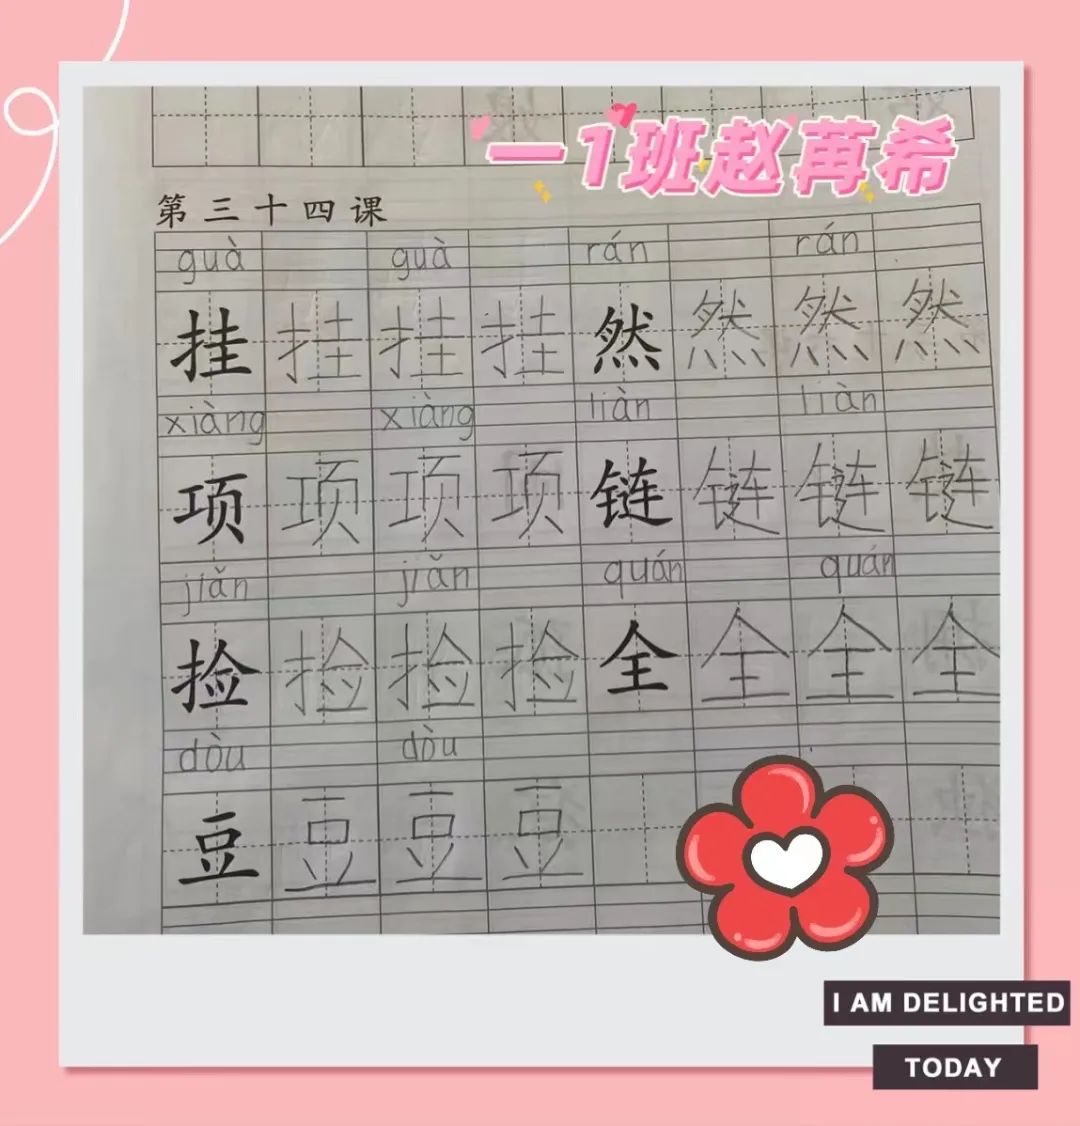 一1班赵苒希
第三十四课
guà guà rán rán
挂 挂 挂 挂 然 然 然 然
xiàng xiàng liàn liàn
项 项 项 项 链 链 链 链
jiǎn jiǎn quán quán
捡 捡 捡 捡 全 全 全 全
dòu dòu
豆 豆 豆 豆
I AM DELIGHTED
TODAY